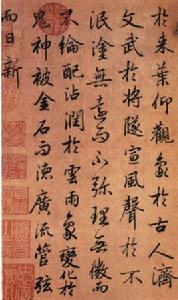 於來葉仰觀象於古人濟
文武於將墜宣風聲於不
泯塗無遠而不彌理無微而
不綸配沾潤於雲雨象變化於
鬼神被金石而德廣流管弦
而日新